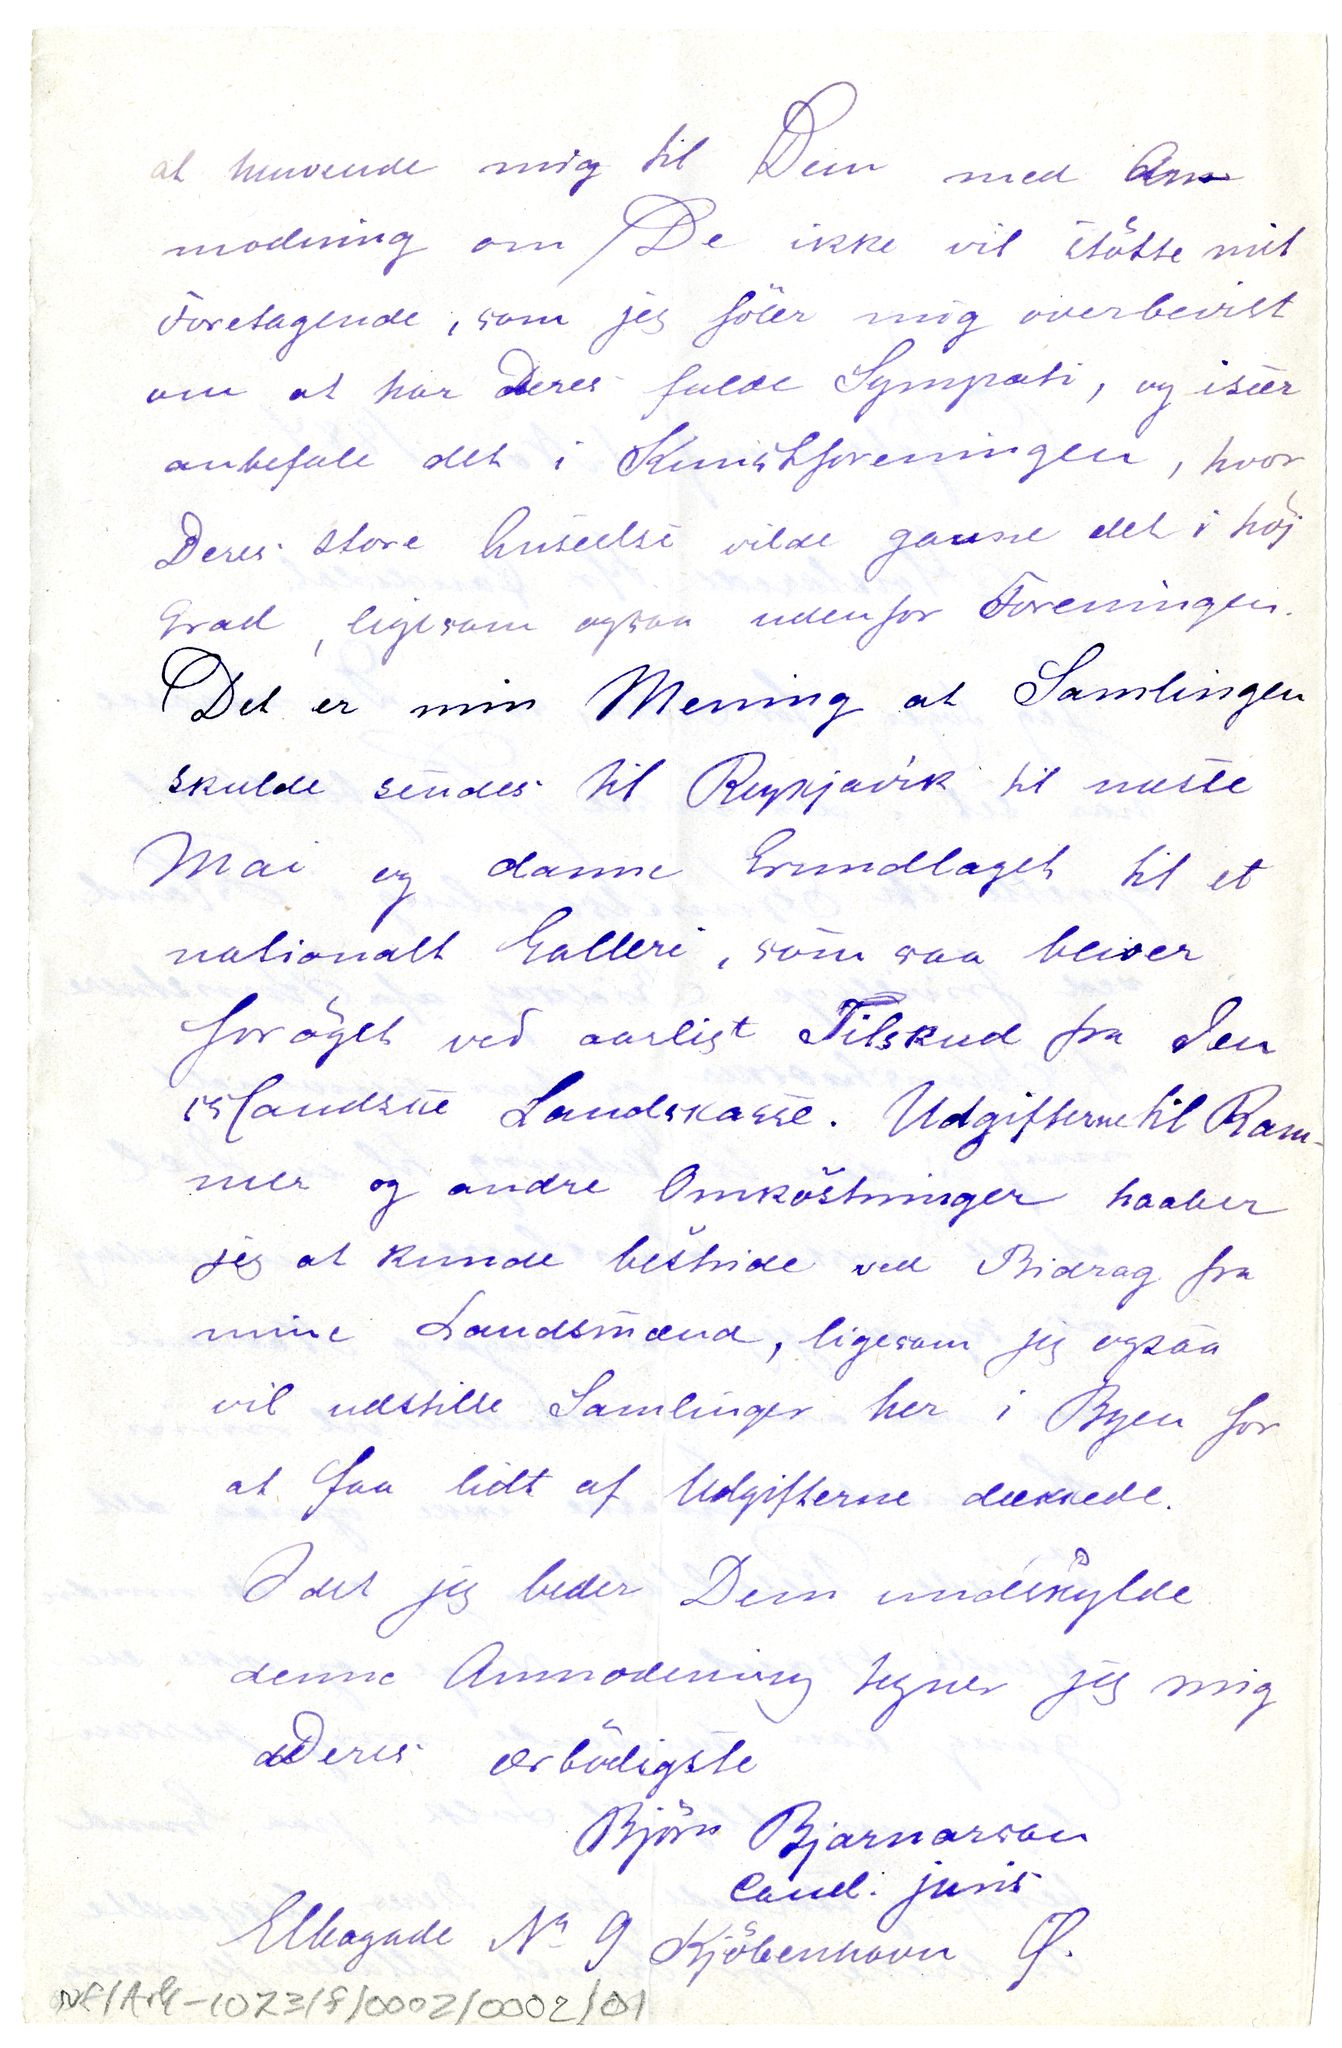 at henvende mig til Dem med An
modning om De ikke vil stötte mit
Foretagende, som jeg föler mig overbevist
om at har Deres fulde Sympati, og især
anbefale det i Kunstforeningen, hvor
Deres store Anseelse vilde gavne det i höj
Grad, ligesom ogsaa udenfor Foreningen.
Det er min Mening at Samlingen
skulde sendes til Reykjavik til næste
Mai og danne Grundlaget til et
nationalt Galleri, som saa bliver
foröget ved aarligt Tilskud fra den
islandske Landskasse. Udgifterne til Ram-
mer og andre Omköstninger haaber
jeg at kunde bestride ved Bidrag fra
mine Landsmænd, ligesom jeg ogsaa
vil udstille Samlinger her i Byen for
at faa lidt af Udgifterne dækkede.
Idet jeg beder Dem undskylde
denne Anmodening tegner jeg mig
Deres ærbödigste
Björn Bjarnarson
Cand. juris
Elbagade No 9 Kjöbenhavn Ø.
NF/Ark-1023/F/0002/0002/01